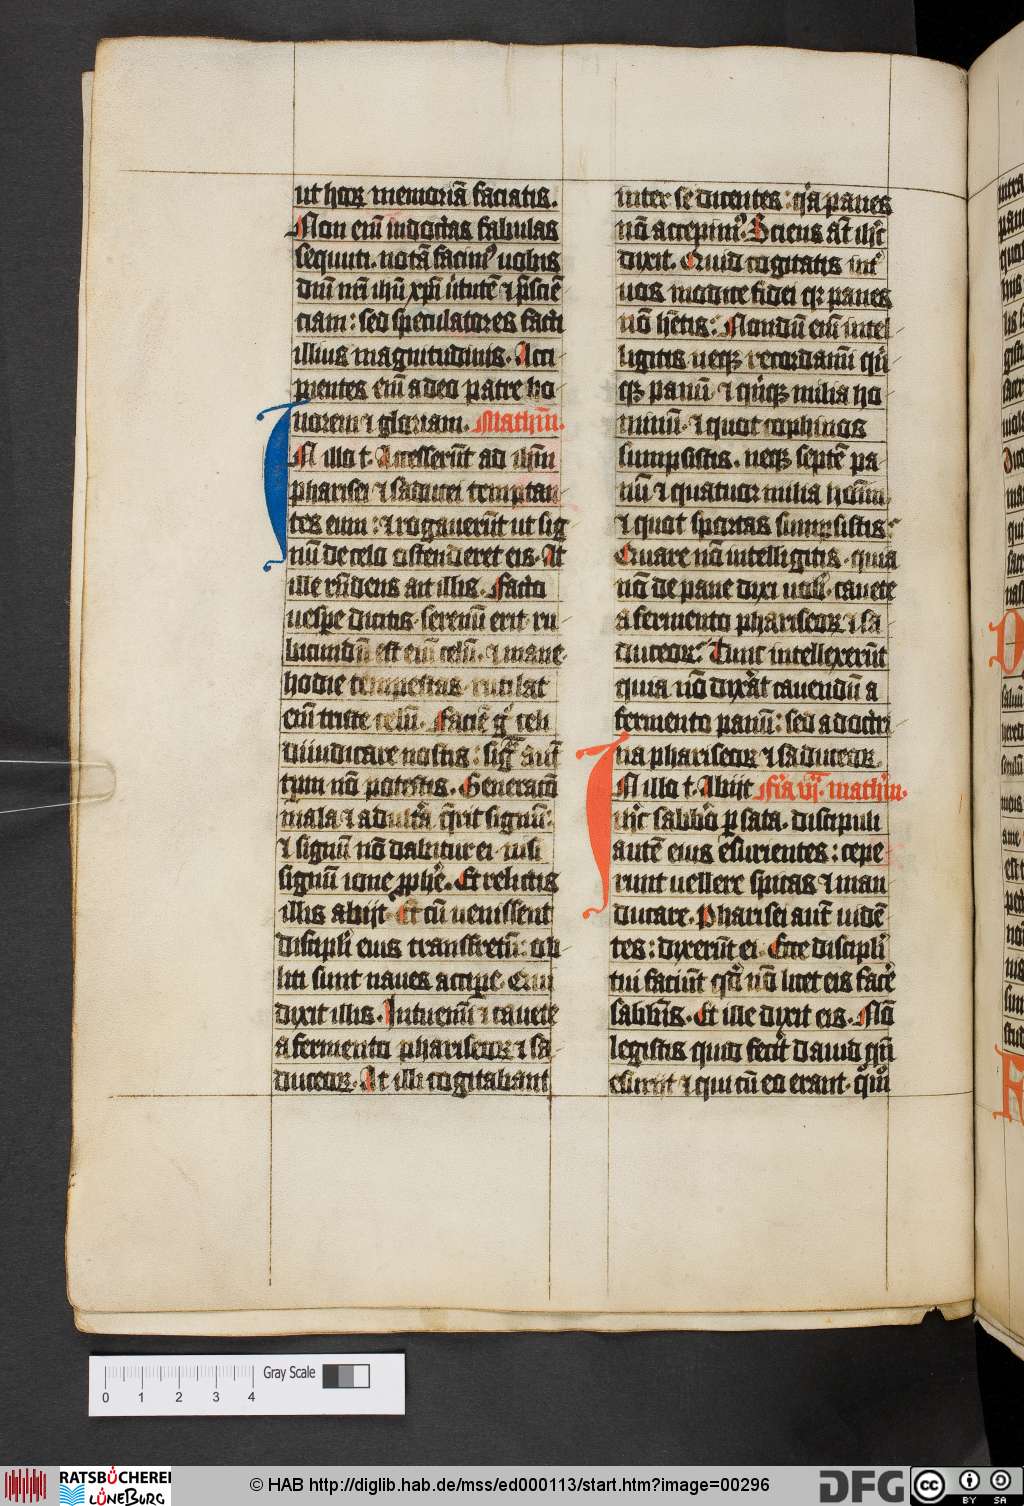 ut hoꝝ memoriā faciatis.
Non eīm indoctas fabulas
sequuti. notā facimꝰ uobis
dñi nr̄i ihū xp̄i ũtutē ⁊ p̃sciē
ciam: sed speculatores facti
illius magnitudinis. Acci
pientes eīm a deo patre ho
norem ⁊ gloriam. Mathm̄.
IN illo t. Accesserūt ad ihm̄
pharisei ⁊ saducei temptan
tes eum: ⁊ rogauerūt ut sig
nū de celo ostenderet eis. At
ille rn̄dens ait illis. Facto
uespe dicitis. serenū erit. ru
bicundū est eīm celū. ⁊ mane
hodie tempestas. rutilat
eīm triste celū. Faciē gͦ celi
diiudicare nostis: signa aut̄
tp̄m nō potestis. Generacō
mala ⁊ adult̾a q̄rit signū:
⁊ signū nō dabitur ei. nisi
signū ione ꝓphe. Et relictis
illis abijt. Et cū uenissent
discipli eius transfretū: ob
liti sunt panes accipe. Qui
dixit illis. Intuemī ⁊ cauete
a fermento phariseoꝝ ⁊ sa
duceoꝝ. At illi cogitabant
inter se dicentes: qͥa panes
nō accepimꝰ. Sciens at̄ ihc̄
dixit. Quid cogitatis int̾
uos modice fidei qꝛ panes
nō hētis: Nondū eīm intel
ligitis neqꝫ recordamī qͥn
qꝫ panū ⁊ qͥnqꝫ milia ho
minū. ⁊ quot cophinos
sumpsistis. neqꝫ septē pa
nū ⁊ quatuor milia hoīm
⁊ quot sportas sumpsistis:
Quare nō intelligitis. quia
nō de pane dixi uob̄. cauete
a fermento phariseoꝝ ⁊ sa
duceoꝝ. Tunc intellexerūt
quia nō dix̾at cauendū a
fermento panū: sed a doctri
na phariseoꝝ ⁊ saduceoꝝ.
IN illo t. Abijt Fr̄ia vj. mathm̄.
ihc̄ sabbō p sata. discipuli
autē eius esurientes: cepe
runt uellere spicas ⁊ man
ducare. Pharisei aut̄ uidē
tes: dixerūt ei. Ecce discipli
tui faciūt qd̾ nō licet eis face
sabb̄is. Et ille dixit eis. Nō
legistis quid fecit dauid qn̄
esurijt ⁊ qui cū eo erant. qͦmō
0 1 2 3 4
Gray Scale
RATSBÜCHEREI
LÜNEBURG
© HAB http://diglib.hab.de/mss/ed000113/start.htm?image=00296
DFG
cc
BY SA